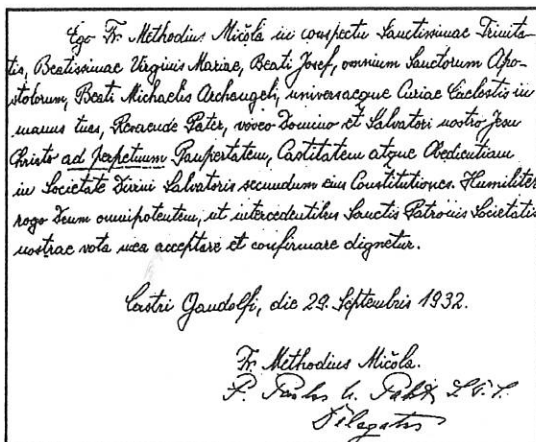 Ego Fr. Methodius Mičola in conspectu Sanctissimae Trinita-
tis, Beatissimae Virginis Mariae, Beati Josef, omnium Sanctorum Apo-
stolorum, Beati Michaelis Archangeli, universaeque Curiae Caelestis in
manus tuas, Reverende Pater, voveo Domino et Salvatori nostro Jesu
Christo ad perpetuum Paupertatem, Castitatem atque Obedientiam
in Societate Divini Salvatoris secundum eius Constitutiones. Humiliter
rogo Deum omnipotentem, ut intercedentibus Sanctis Patronis Societatis
nostrae vota mea acceptare et confirmare dignetur.
Castri Gandolfi, die 29. Septembris 1932.
Fr. Methodius Mičola.
P.
Delegatus